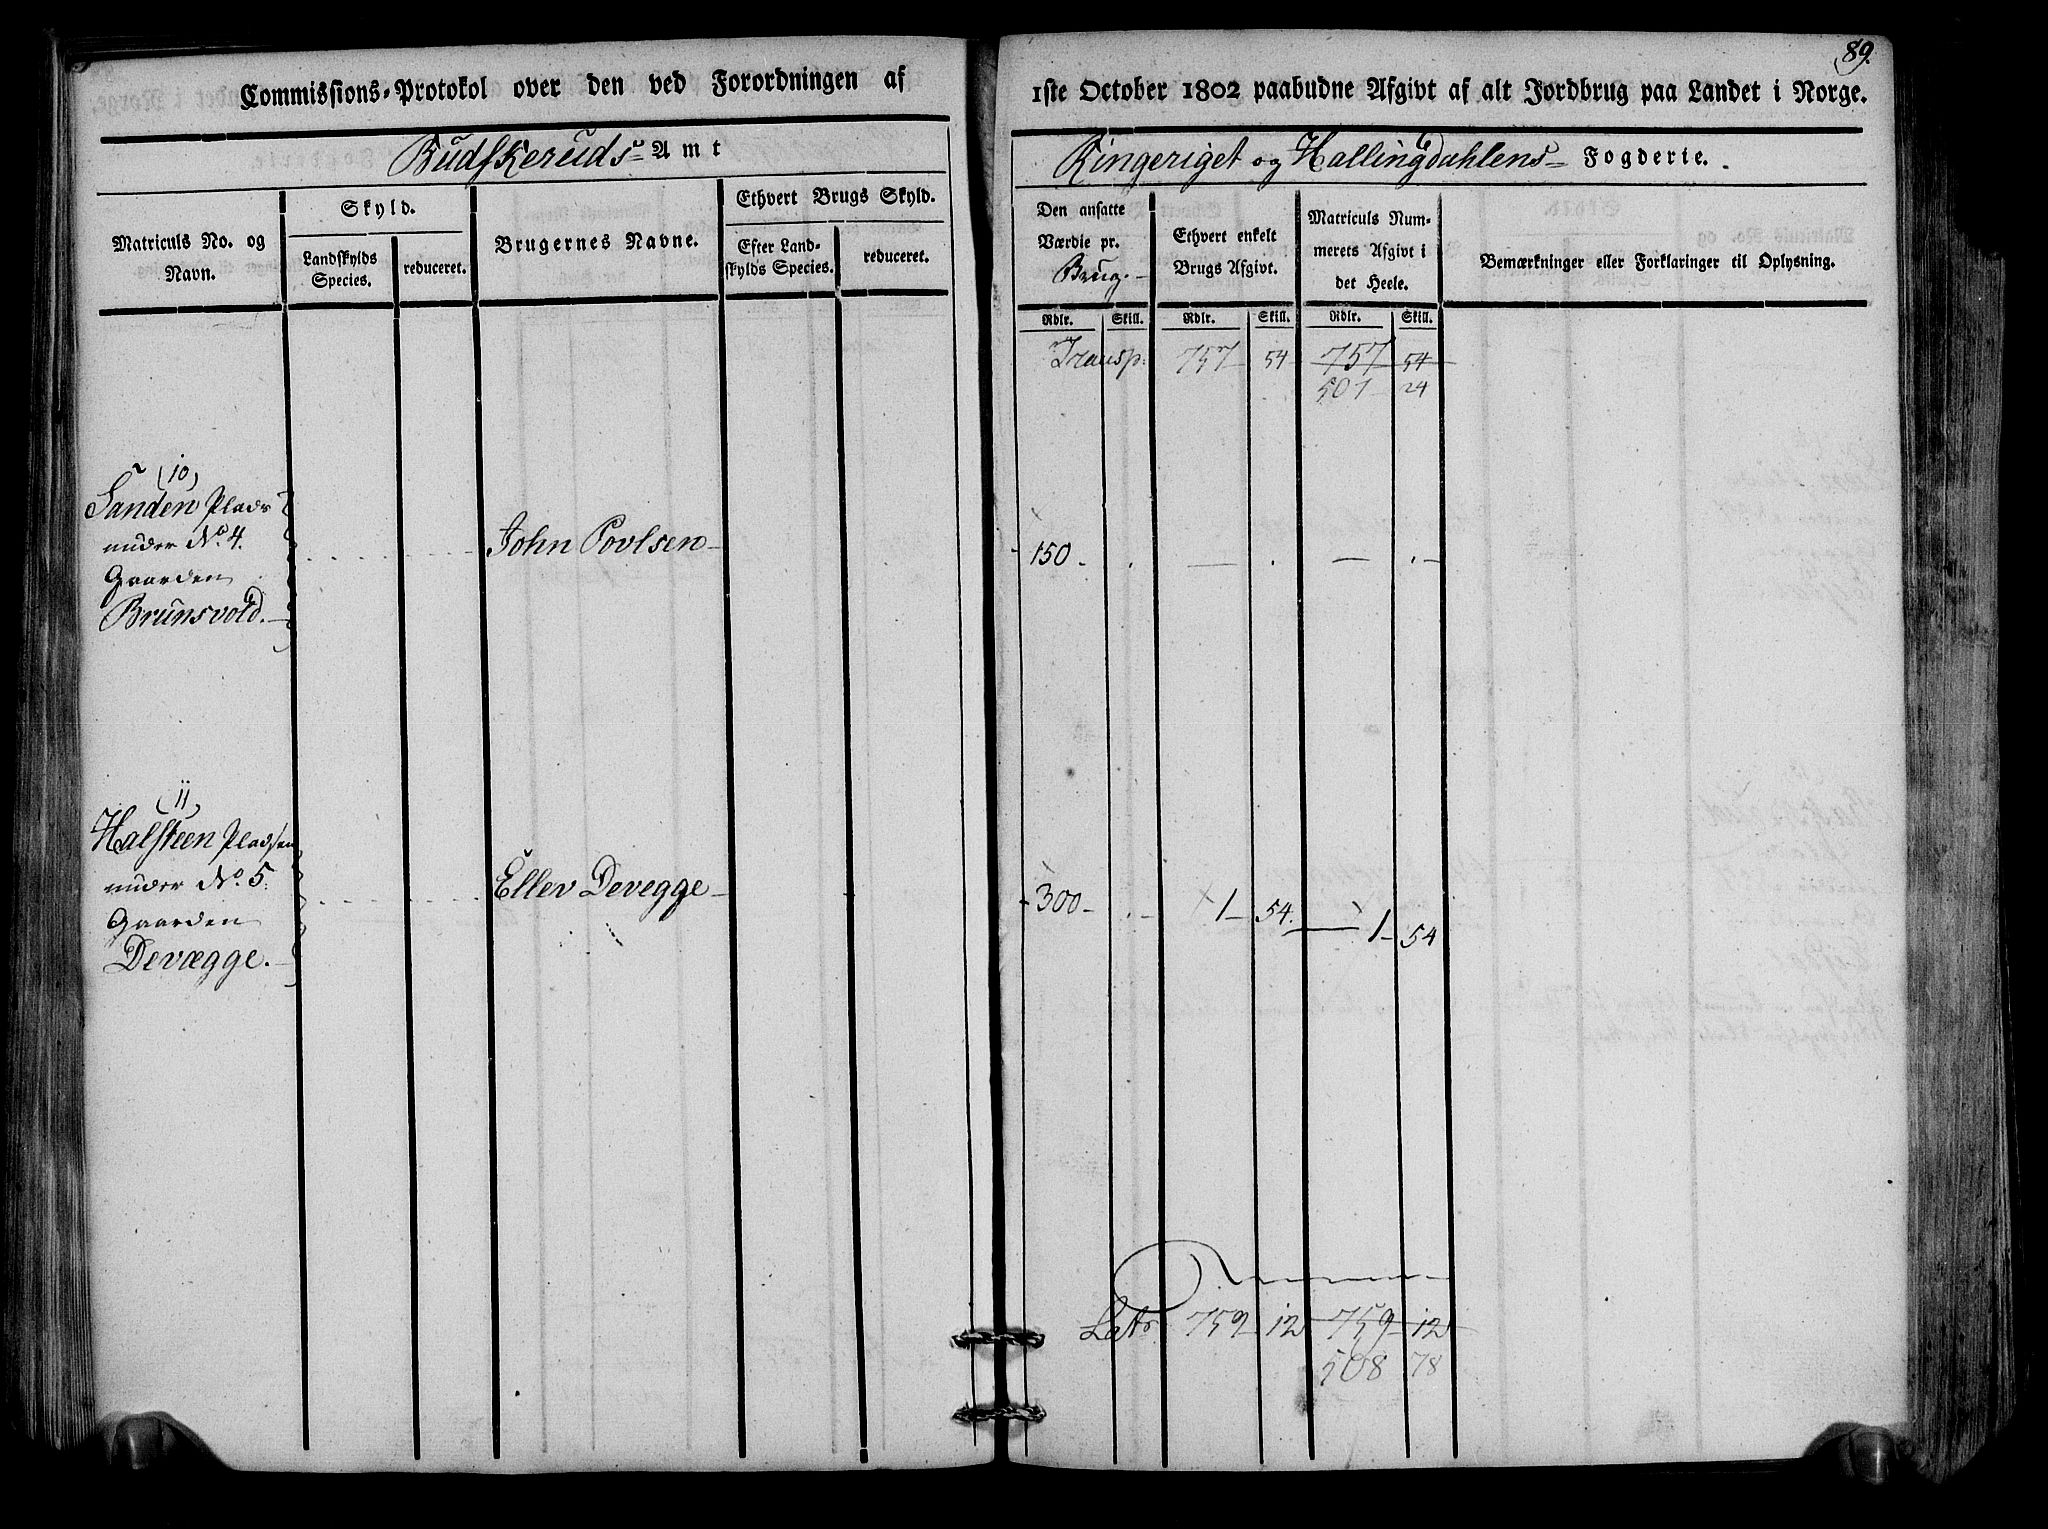 89.
Commissions-Protokol over den ved Forordningen af
1ste October 1802 paabudne Afgivt af alt Jordbrug paa Landet i Norge.
Budskeruds Amt
Ringeriget og Hallingdahlens Fogderie.
Matriculs No. og Navn.
Skyld.
Landskylds Species.
reduceret.
Brugernes Navne.
Ethvert Brugs Skyld.
Efter Landskylds Species.
reduceret.
Den ansatte Værdie pr. Brug.
Ethvert enkelt Brugs Afgivt.
Matriculs Nummerets Afgivt i det Heele.
Bemærkninger eller Forklaringer til Oplysning.
Rdlr. Skill. Rdlr. Skill. Rdlr. Skill.
Transp: 757 54 757 54
501 24
10)
Sanden Plads
under No. 4.
Gaarden
Brunsvold.
John Povlsen
150
11)
Halsteen Pladsen
under No. 5.
Gaarden
Devægge.
Ellev Devegge
300 1 54. 1 54
Latr 759 12 759 12
508 78